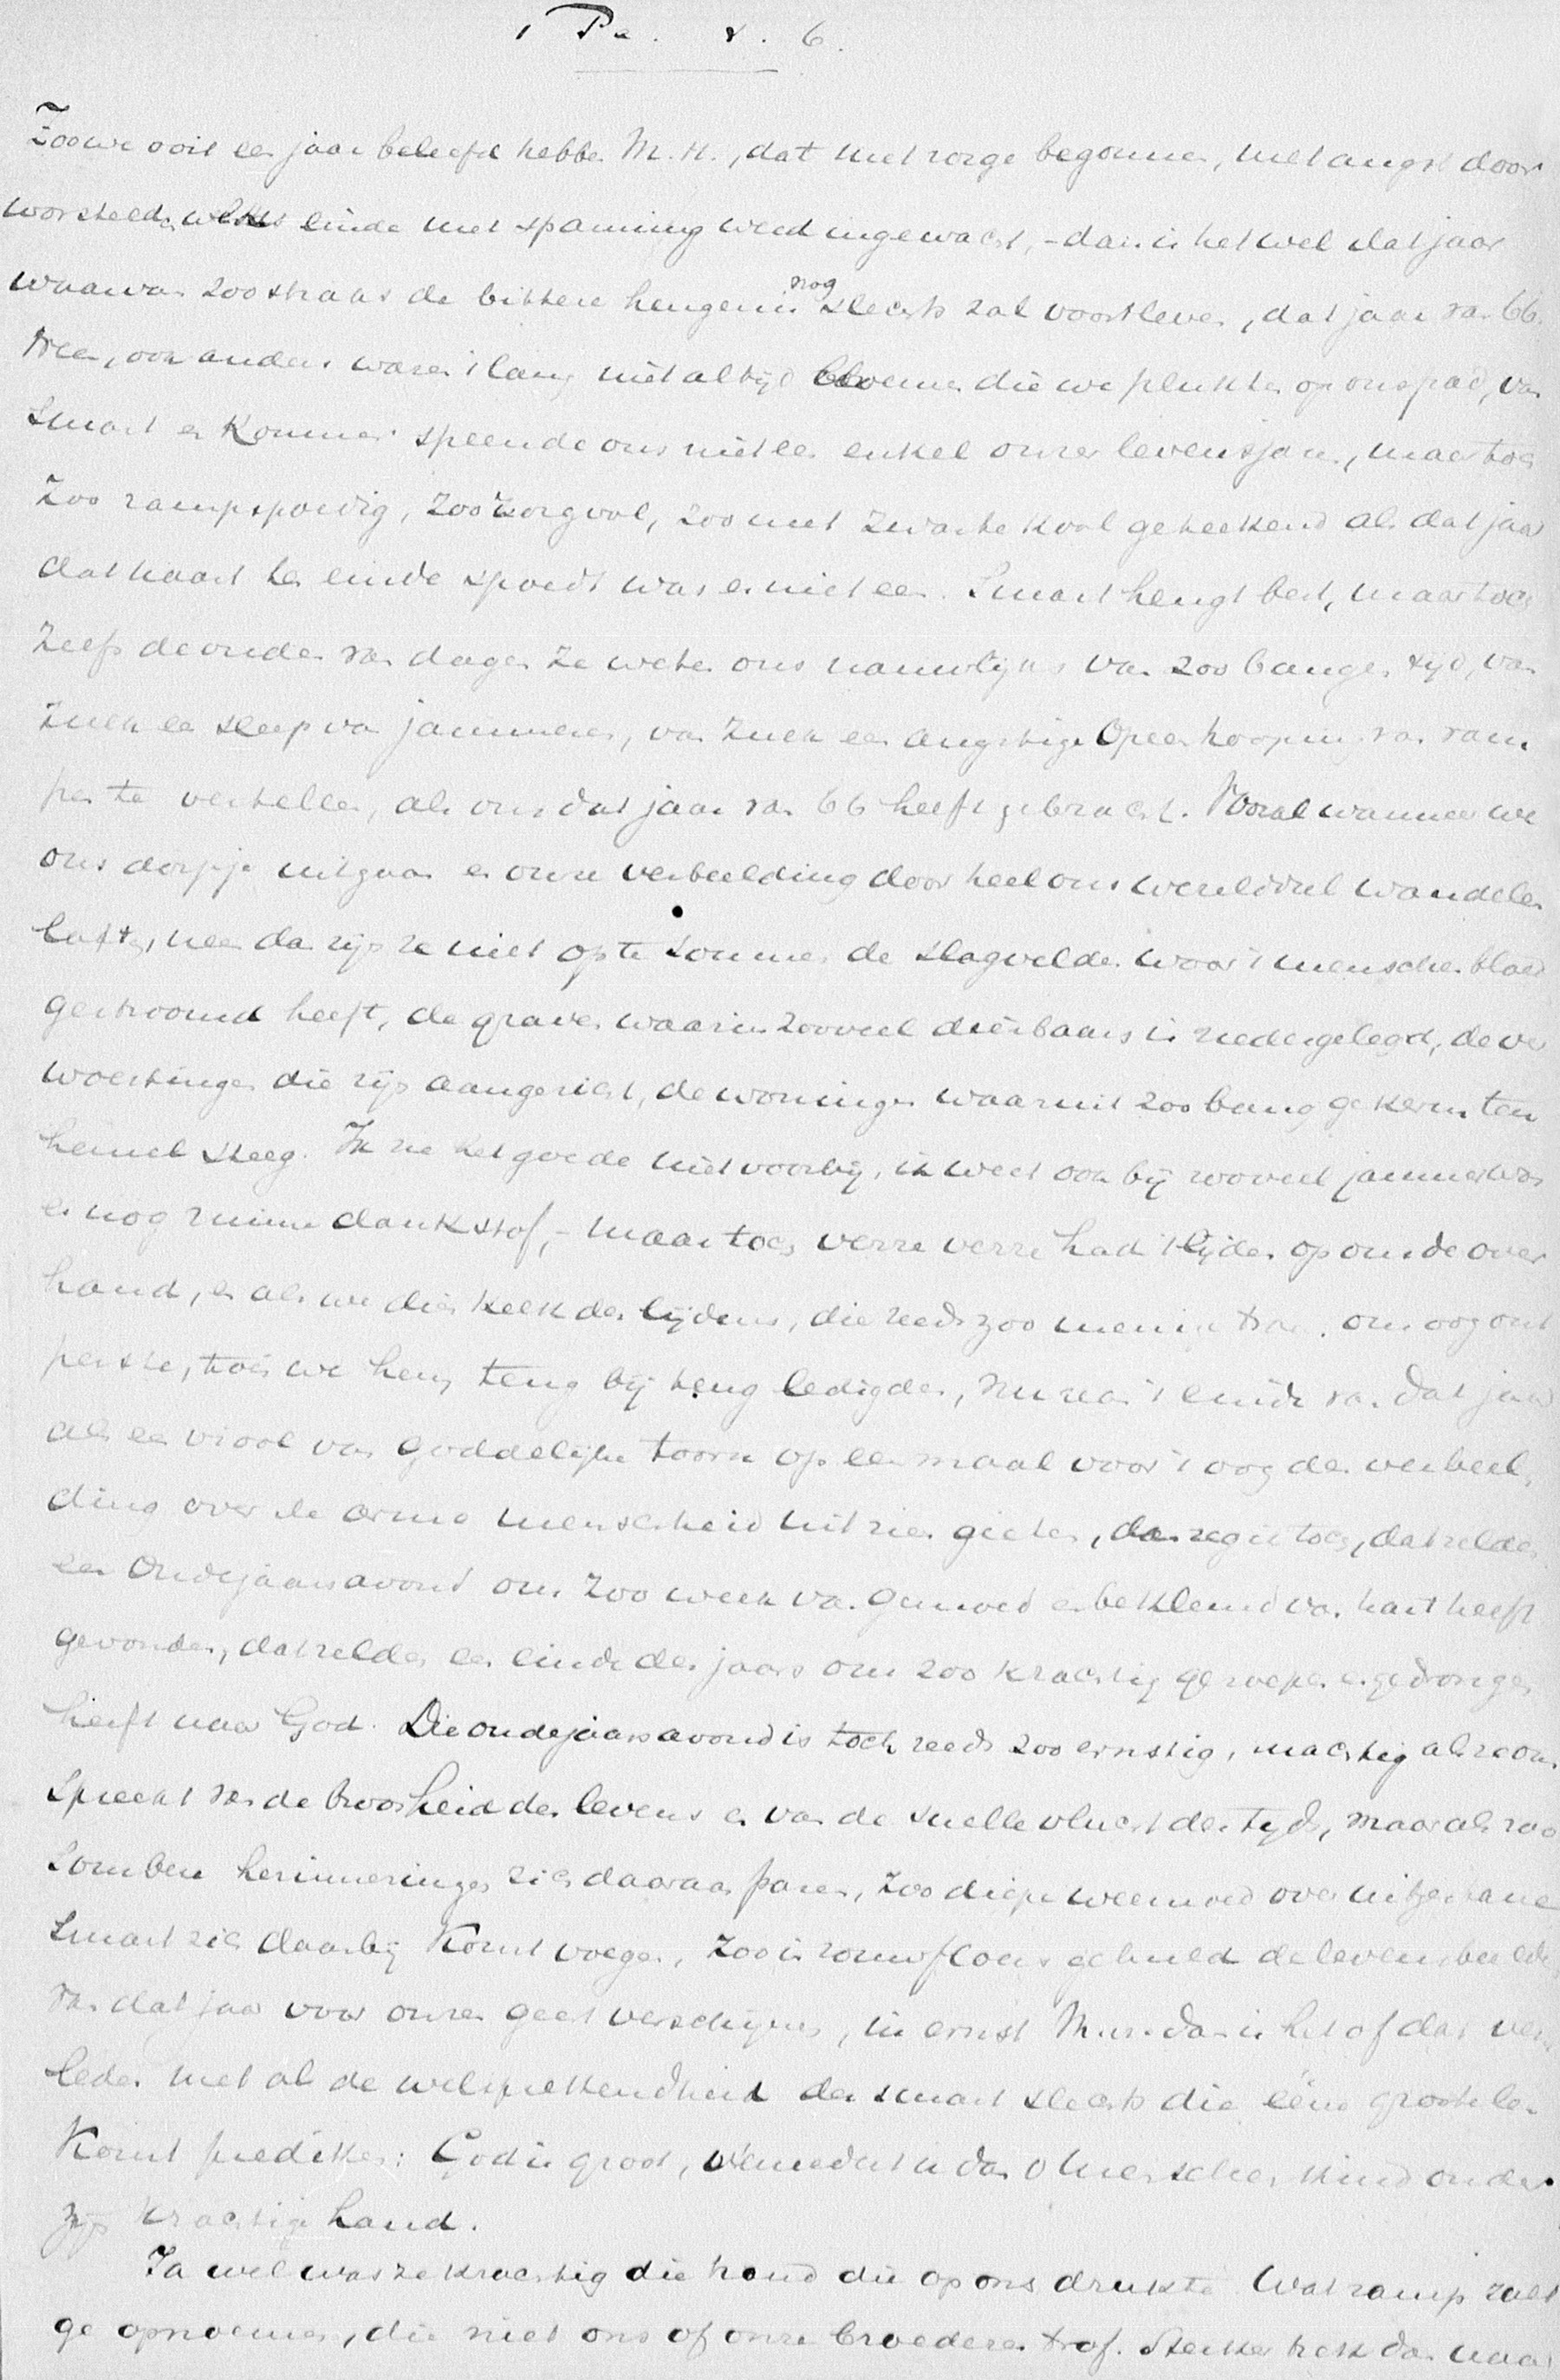 1 Pe. V. 6.
Zoo we ooit een jaar beleefd hebben M. H., dat met zorge begonnen, met angst door
worsteld, welks einde met spanning werd ingewacht, - dan is het wel dat jaar
waarvan zoo straks de bittere heugenis nog slechts zal voortleven, dat jaar van 66.
Neen, ook anders waren 't lang niet altijd bloemen die we plukten op ons pad, van
smart en kommer speende ons niet een enkel onzer levensjaren, maar toch
zoo rampspoedig, zoo zorgvol, zoo met zwarte kool geteekend als dat jaar
dat haast ten einde spoedt was er niet een. Smart heugt best, maar toch
zelfs de ouden van dagen ze weten ons nauwlijks van zoo bangen tijd, van
zulk een sleep van jammeren, van zulk een angstige opeenhooping van ram
pen te vertellen, als ons dat jaar van 66 heeft gebracht. Vooral wanneer we
ons dorpje uitgaan en onze verbeelding door heel ons werelddeel wandelen
laten, neen dan zijn ze niet op te sommen de slagvelden waar 't menschenbloed
gestroomd heeft, de graven waarin zooveel dierbaars is nedergelegd, de ver
woestingen die zijn aangericht, de woningen waaruit zoo bang gekerm ten
hemel steeg. Ik zie het goede niet voorbij, ik weet ook bij zooveel jammer was
er nog ruime dankstof, - maar toch verre verre had 't lijden op ons de over
hand, en als we dien kelk des lijdens, die reeds zoo menige traan ons oog ont
perste, toen we hem teug bij teug ledigden, nu we aan 't einde van dat jaar
als een viool van goddelijken toorn op eenmaal voor 't oog der verbeel,
ding over de arme menschheid uit zien gieten, dan zeg ik toch, dat zelden
een Oudejaarsavond ons zoo week van gemoed en beklemd van hart heeft
gevonden, dat zelden een einde des jaars ons zoo krachtig geroepen en gedrongen
heeft naar God. Die oudejaarsavond is toch reeds zoo ernstig, machtig als ze ons
spreekt van de broosheid des levens en van de snelle vlucht des tijds, maar als zoo
sombere herinneringen zich daaraan paren, zoo diepe weemoed over uitgestane
smart zich daarbij komt voegen, zoo in rouwfloers gehuld de levensbeelden
van dat jaar voor onzen geest verschijnen, in ernst M. H. dan is het of dat ver,
leden met al de welsprekendheid der smart slechts die ééne groote les
komt prediken: God is groot, verneder u dan o menschenkind onder
zijn krachtige hand.
Ja wel was ze krachtig die hand die op ons drukte. Wat ramp zult
ge opnoemen, die niet ons of onze broederen trof. Sterker trekt dan naar